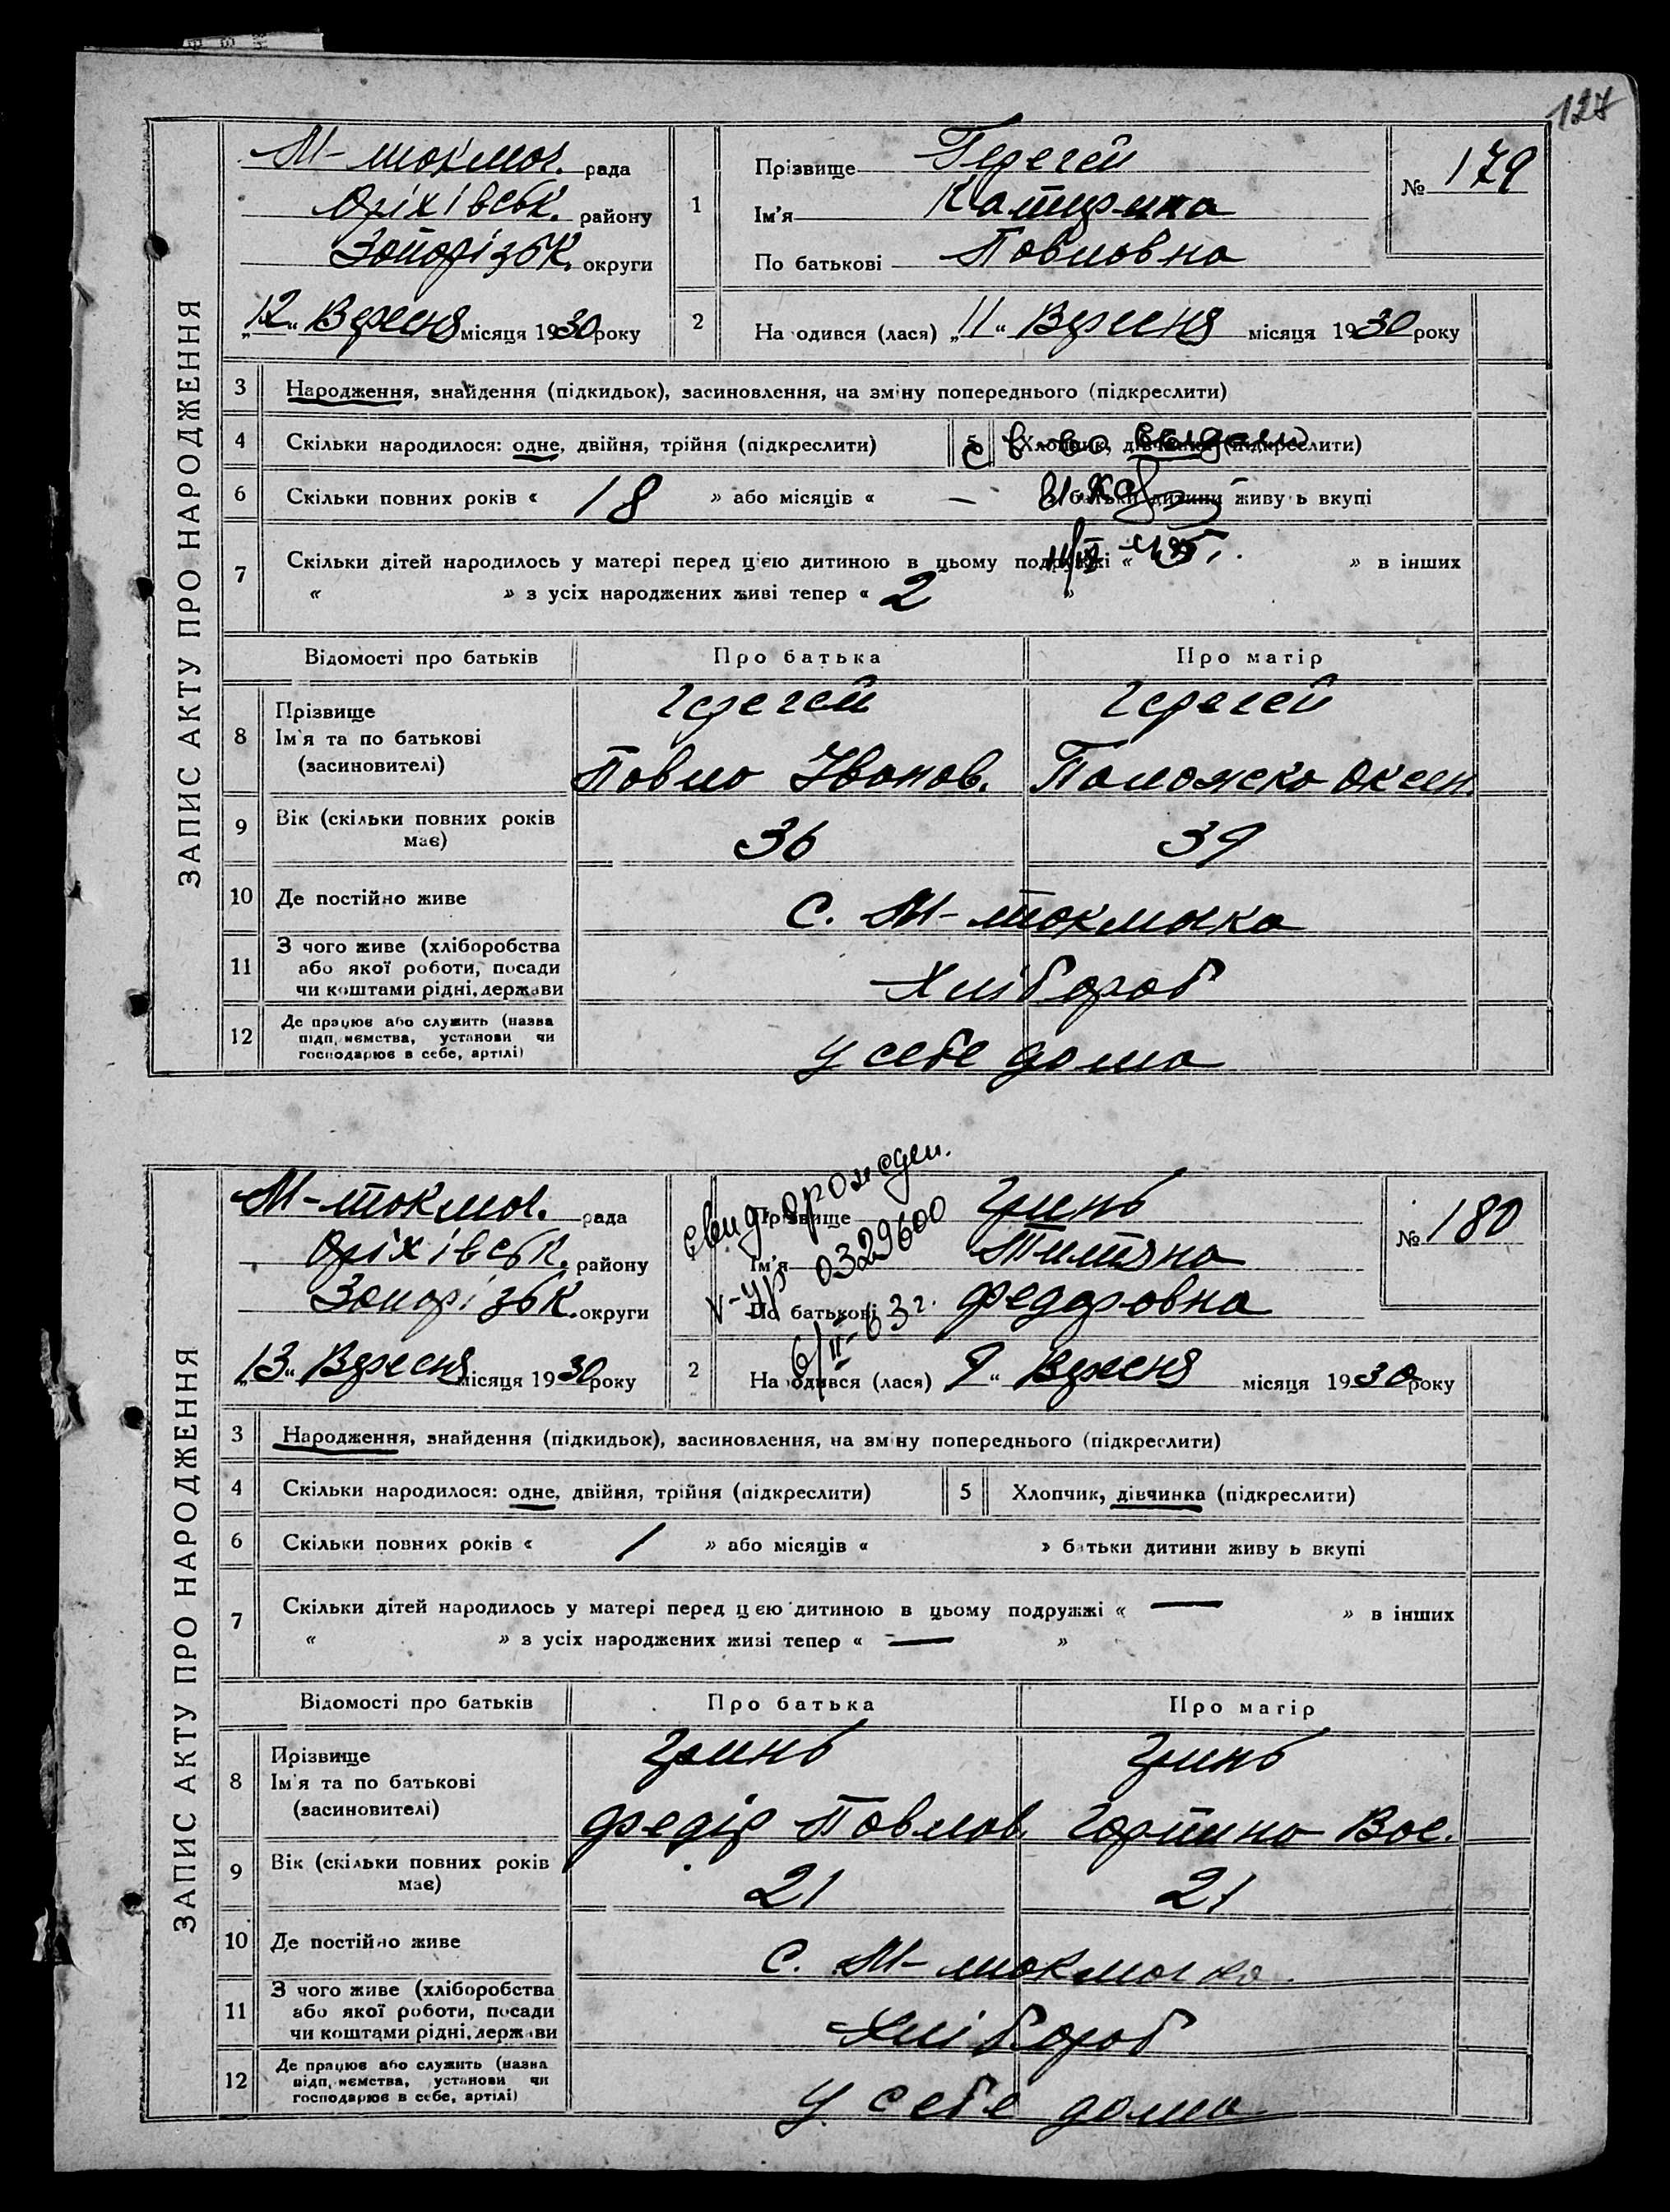 127
ЗАПИС АКТУ ПРО НАРОДЖЕННЯ
М-токмач. рада
Оріхівськ. району
Запорізьк. округи
„12“ Вересня місяця 1930 року
1
Прізвище Герегей
Ім'я Катерина
По батькові Павловна
№ 179
2
Народився (лася) „11“ Вересня місяця 1930 року
3 Народження, знайдення (підкидьок), засиновлення, на зміну попереднього (підкреслити)
4 Скільки народилося: одне, двійня, трійня (підкреслити)
5 Хлопчик, дівчинка (підкреслити)
с в-во выдан
6 Скільки повних років « 18 » або місяців « — » батьки дитини живуть вкупі
7 Скільки дітей народилось у матері перед цією дитиною в цьому подружжі « » в інших
« » з усіх народжених живі тепер « 2 »
Відомості про батьків Про батька Про матір
8 Прізвище Герегей Герегей
Ім'я та по батькові
(засиновителі) Павло Іванов. Паложка Оксен.
9 Вік (скільки повних років має) 36 39
10 Де постійно живе с. М-токмачка
11 З чого живе (хліборобства
або якої роботи, посади
чи коштами рідні, держави Хлібороб
12 Де працює або служить (назва
підприємства, установи чи
господарює в себе, артілі) У себе дома
ЗАПИС АКТУ ПРО НАРОДЖЕННЯ
М-токмач. рада
Оріхівськ. району
Запорізьк. округи
„13“ Вересня місяця 1930 року
свид. о рожден.
V-УР 0329600
6/II-63 г.
Прізвище Гринь
Ім'я Титяна
По батькові Федоровна
№ 180
2
Народився (лася) 9“ Вересня місяця 1930 року
3 Народження, знайдення (підкидьок), засиновлення, на зміну попереднього (підкреслити)
4 Скільки народилося: одне, двійня, трійня (підкреслити)
5 Хлопчик, дівчинка (підкреслити)
6 Скільки повних років « 1 » або місяців « » батьки дитини живуть вкупі
7 Скільки дітей народилось у матері перед цією дитиною в цьому подружжі « — » в інших
« » з усіх народжених живі тепер « — »
Відомості про батьків Про батька Про матір
8 Прізвище Гринь Гринь
Ім'я та по батькові
(засиновителі) Федір Павлов. Горпина Вас.
9 Вік (скільки повних років має) 21 21
10 Де постійно живе с. М-токмачка
11 З чого живе (хліборобства
або якої роботи, посади
чи коштами рідні, держави Хлібороб
12 Де працює або служить (назва
підприємства, установи чи
господарює в себе, артілі) У себе дома